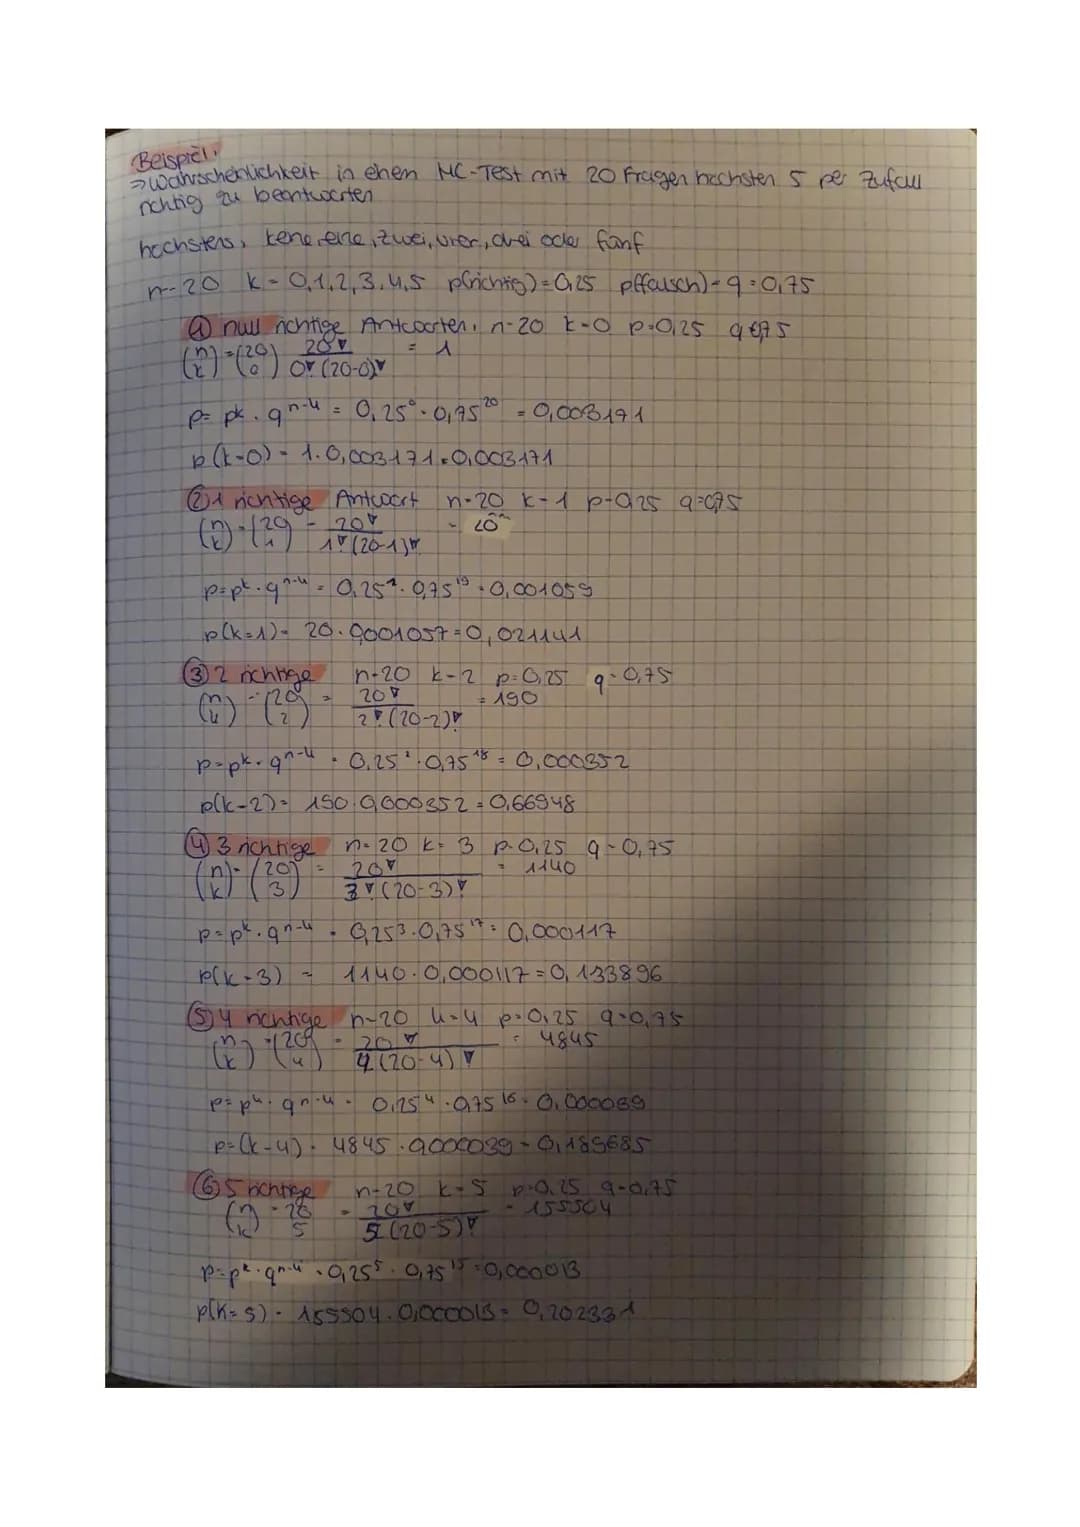 Beispiel:
→ Wahrscheinlichkeit in einem MC-Test mit 20 Fragen höchsten 5 per Zufall
richtig zu beantworten
höchstens: keine, eine, zwei, vier, drei oder fünf
n=20 k=0,1,2,3,4,5 p(richtig)=0,25 p(falsch)=q=0,75
① null richtige Antworten: n=20 k=0 p=0,25 q=0,75
(n k) = (20 0) 20! / 0!(20-0)! = 1
p= p^k · q^n-k = 0,25^0 · 0,75^20 = 0,003171
p(k=0) = 1·0,003171=0,003171
② 1 richtige Antwort n=20 k=1 p=0,25 q=0,75
(n k) = (20 1) = 20! / 1!(20-1)! = 20
p=p^k · q^n-k = 0,25^1 · 0,75^19 = 0,001059
p(k=1) = 20·0,001057=0,021141
③ 2 richtige n=20 k=2 p=0,25 q=0,75
(n k) = (20 2) = 20! / 2!(20-2)! = 190
p=p^k · q^n-k = 0,25^2 · 0,75^18 = 0,000352
p(k=2) = 190·0,000352=0,66948
④ 3 richtige n=20 k=3 p=0,25 q=0,75
(n k) = (20 3) = 20! / 3!(20-3)! = 1140
p=p^k · q^n-k = 0,25^3 · 0,75^17 = 0,000117
p(k=3) = 1140·0,000117=0,133896
⑤ 4 richtige n=20 k=4 p=0,25 q=0,75
(n k) = (20 4) = 20! / 4(20-4)! = 4845
p=p^k · q^n-k = 0,25^4 · 0,75^16 = 0,000039
p=(k=4) = 4845·0,000039=0,189685
⑥ 5 richtige n=20 k=5 p=0,25 q=0,75
(n k) = 20 5 = 20! / 5(20-5)! = 155504
p=p^k · q^n-k = 0,25^5 · 0,75^15 = 0,000013
p(k=5) = 155504·0,000013=0,202331